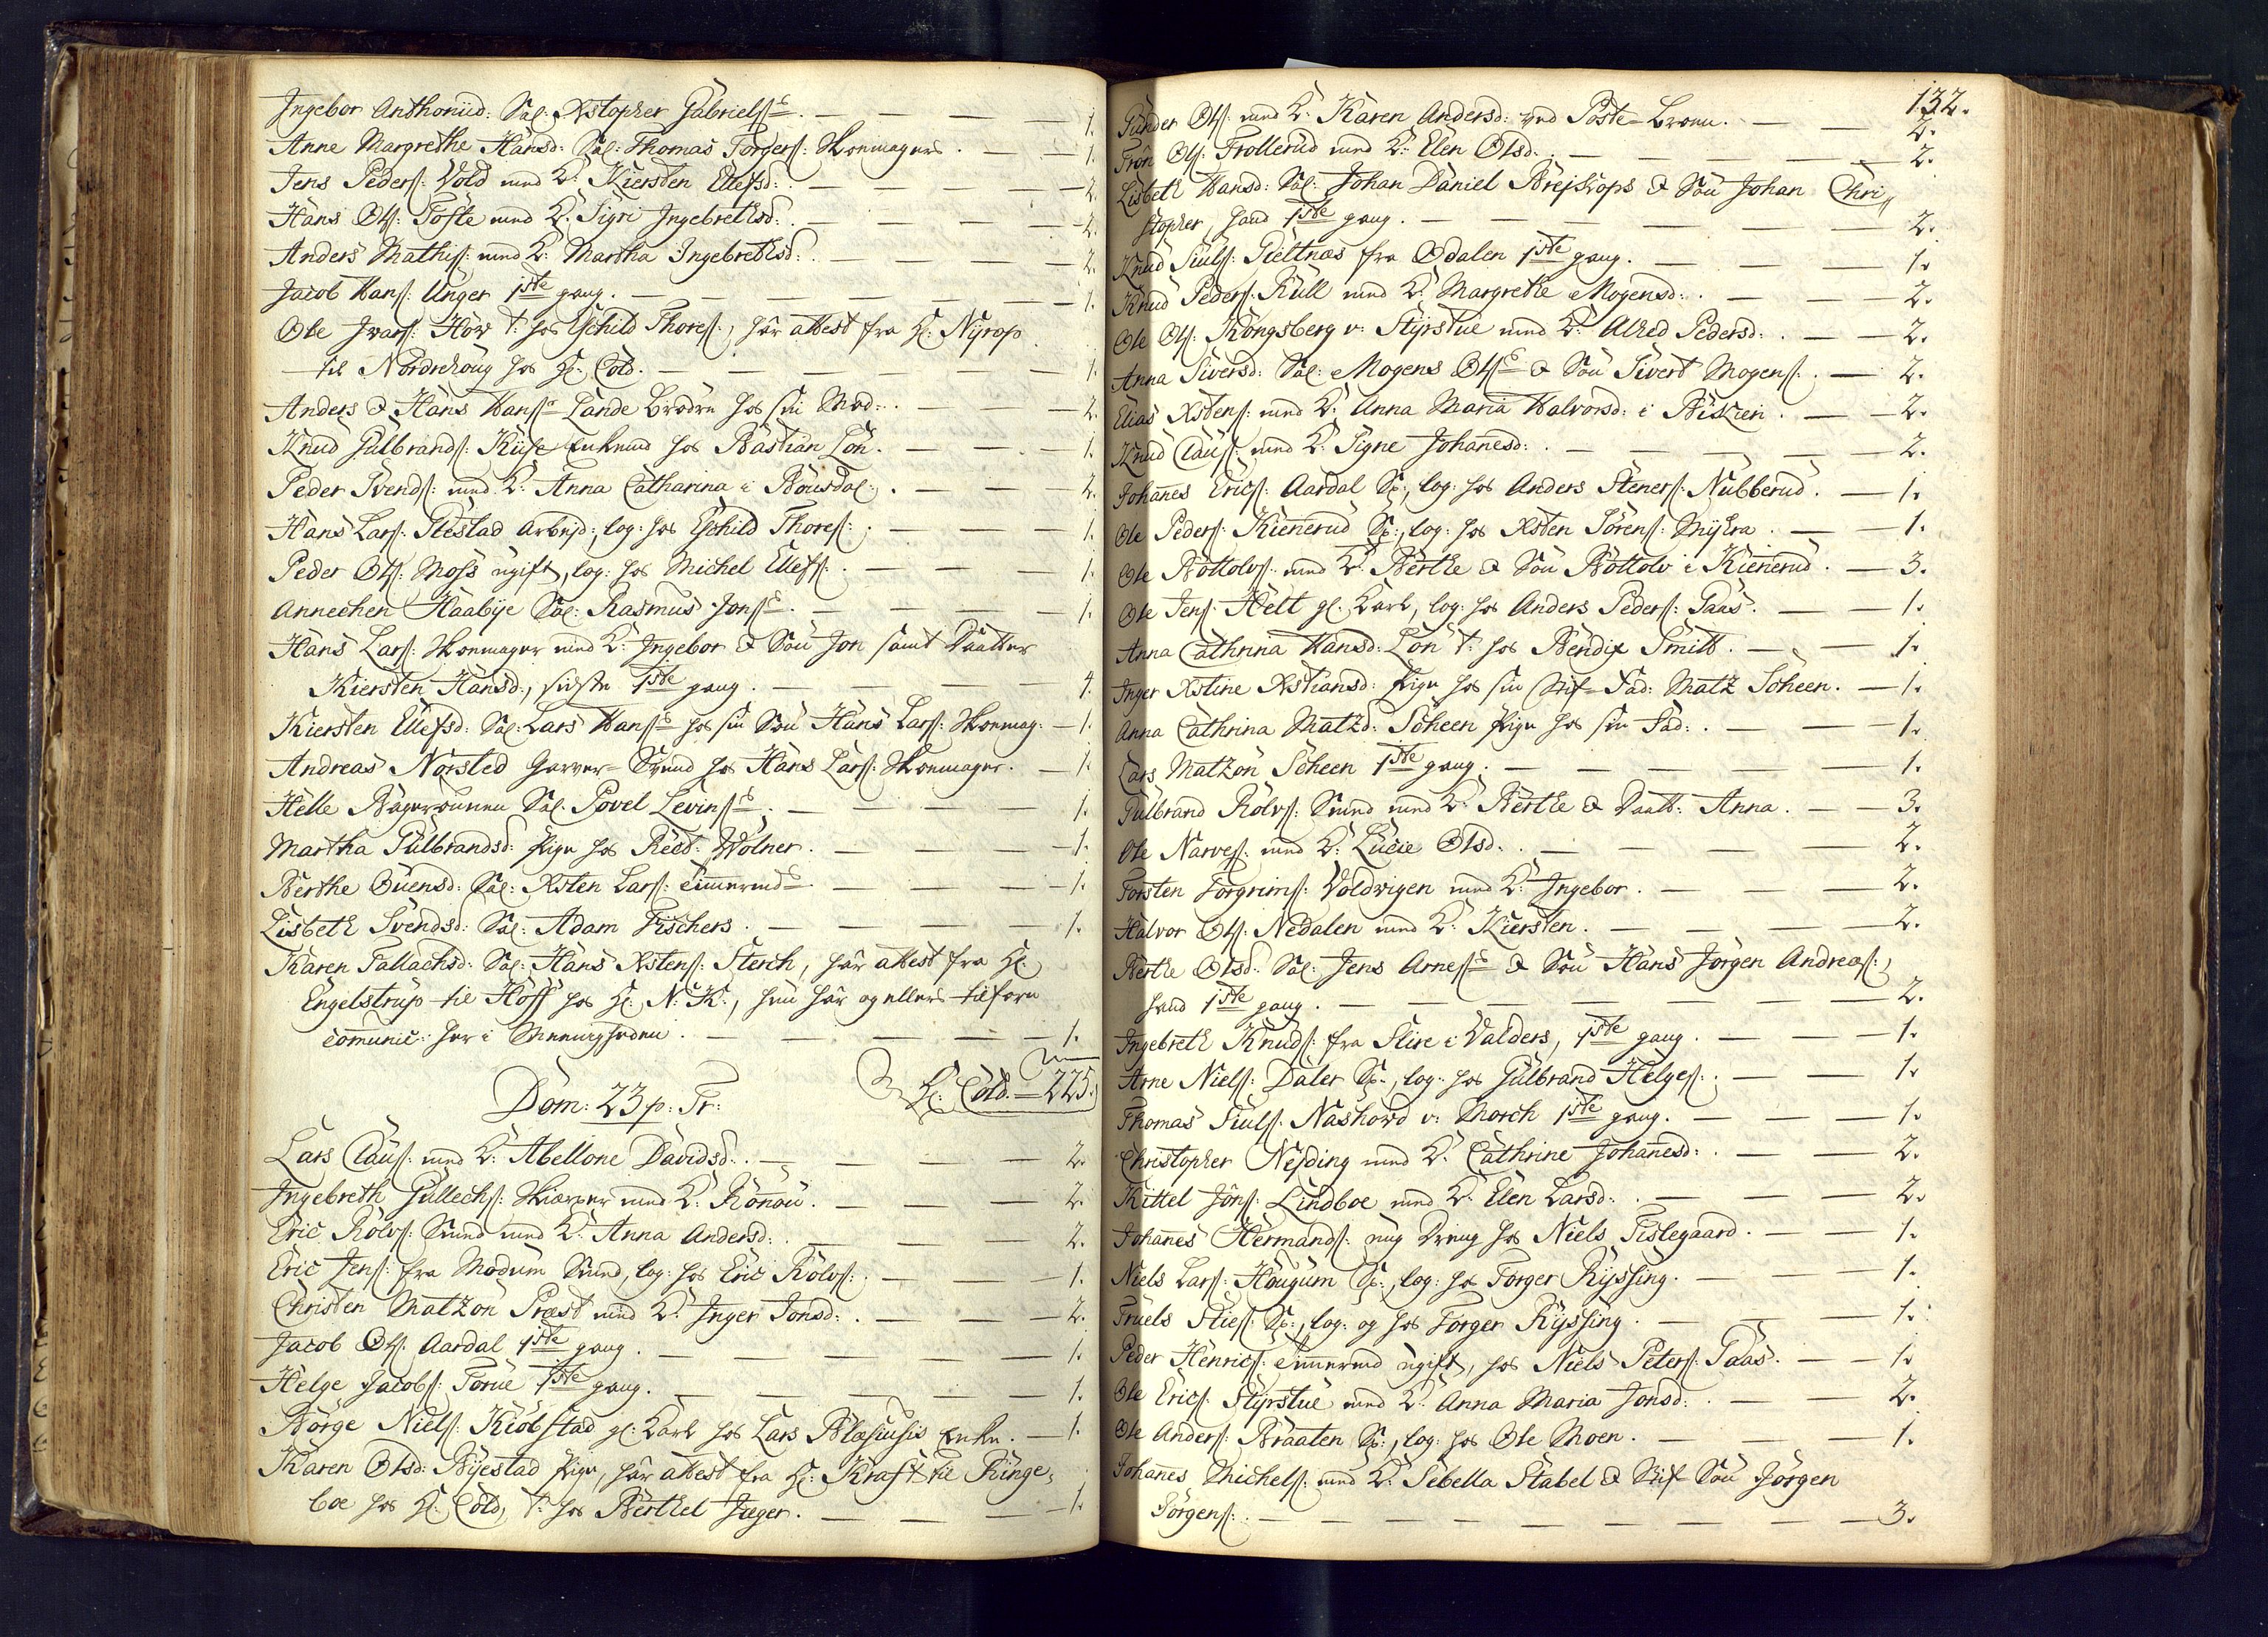 Ingebor Anthoniid: Sal: Xstopher Gabriels: — 1.
Anne Margrethe Hansd: Sal: Thomas Torgers: Skoemagers. — 1.
Jens Peders: Vold med K: Kiersten Ellefsd: — 2.
Hans Ols: Tofte med K: Sigri Ingebrethsd: — 2.
Anders Mathis: med K: Martha Ingebrethsd: — 2.
Jacob Hans: Unger 1ste gang. — 1.
Ole Ivars: Hov t: hos Eschild Thores:, har attest fra Hr: Nyrop
til Nordrehoug hos Hr: Cold. — 1.
Anders & Hans Hans: Lande Brødre hos sin Mod: — 2.
Knud Gulbrands: Kiise Enkemd hos Bastian Løn. — 1.
Peder Svends: med K: Anna Catharina i — 2.
Hans Lars: Flestad arbejd:, log: hos Eschild Thores: — 1.
Peder Ols: Moss ugift, log: hos Michel Ellefs: — 1.
Annechen Haabye Sal: Rasmus Jons: — 1.
Hans Lars: Skoemager med K: Ingebor & Søn Jon samt Daatter
Kiersten Hansd:, sidste 1ste gang. — 4.
Kiersten Ellefsd: Sal: Lars Hans: hos sin Søn Hans Lars: Skoemag: — 1.
Andreas Norsted Garver-Svend hos Hans Lars: Skoemager. — 1.
Helle Sal: Povel Levins: — 1.
Martha Gulbrandsd: Pige hos Resd: Wolner. — 1.
Berthe Evensd: Sal: Xsten Lars: Timermd: — 1.
Lisbeth Svendsd: Sal: Adam Fischers. — 1.
Karen Tallachsd: Sal: Hans Xstens: Sterch, har attest fra Hr:
Engelstrup til Hoff hos Hr: N: K:, hun har og ellers tilforn
comunic: her i Menigheden. — 1.
Hr: Cold. — 225.
Dom: 23 p: Tr:
Lars Claus: med K: Abellone Davidsd: — 2.
Ingebreth Gullechs: Skiærper med K: Rønnou. — 2.
Eric Rolvs: Smed med K: Anna Andersd: — 2.
Eric Jens: fra Modum Smed, log: hos Eric Rolvs: — 1.
Christen Matzon Præst med K: Inger Jonsd: — 2.
Jacob Ols: Aardal 1ste gang. — 1.
Helge Jacobs: Torue 1ste gang. — 1.
Børge Niels: Kiøbstad gl: Karl hos Lars Blasiusis Enke. — 1.
Karen Olsd: Byestad Pige, har attest fra Hr: Kraft til Ringe-
boe hos Hr: Cold, t: hos Berthel Jæger. — 1.
132.
Gunder Ols: med K: Karen Andersd: ved — 2.
Tron Ols: Trollerud med K: Elen Olsd: — 2.
Lisbeth Hansd: Sal: Johan Daniel & Søn Johan Chri-
stopher, hand 1ste gang. — 2.
Knud Siuls: fra Odalen 1ste gang. — 1.
Knud Peders: Rull med K: Margrethe Mogensd: — 2.
Ole Ols: Kongsberg v: Styrstue med K: Alhed Pedersd: — 2.
Anna Siversd: Sal: Mogens Ols: & Søn Sivert Mogens: — 2.
Elias Xstens: med K: Anna Maria Halvorsd: i — 2.
Knud Claus: med K: Signe Johanesd: — 2.
Johanes Erics: Aardal S:, log: hos Anders Steners: Nubberud. — 1.
Ole Peders: Kiennerud S:, log: hos Xsten Sørens: Myhra. — 1.
Ole Bottolvs: med K: Berthe & Søn Bottolv i Kiennerud. — 3.
Ole Jens: Helt gl: Karl, log: hos Anders Peders: Paas. — 1.
Anna Cathrina Hansd: Løn t: hos Bendix Smitt. — 1.
Inger Xstine Xstiansd: Pige hos sin Stif-Fad: Matz Scheen. — 1.
Anna Cathrina Matzd: Scheen Pige hos sin Fad: — 1.
Lars Matzon Scheen 1ste gang. — 1.
Gulbrand Rolvs: Smed med K: Berthe & Daatt: Anna. — 3.
Ole Narves: med K: Lucie Olsd: — 2.
Torsten Torgrims: Voldvigen med K: Ingebor. — 2.
Halvor Ols: Nedalen med K: Kiersten. — 2.
Berthe Olsd: Sal: Jens Arnes: & Søn Hans Jørgen Andreas:,
hand 1ste gang. — 2.
Ingebreth Knuds: fra Slire i Valders, 1ste gang. — 1.
Arne Niels: Daler S:, log: hos Gulbrand Helges: — 1.
Thomas Siuls: Nashovd v: Morch 1ste gang. — 1.
Christopher Nejding med K: Cathrine Johanesd: — 2.
Kittel Jons: Lindboe med K: Elen Larsd: — 2.
Johanes Hermands: ung Dreng hos Niels Tislegaard. — 1.
Niels Lars: Hougum S:, log: hos Torger Ryssing. — 1.
Truels Sties: S:, log: og hos Torger Ryssing. — 1.
Peder Henrics: Timermd ugift, hos Niels Peters: Paas. — 1.
Ole Erics: Styrstue med K: Anna Maria Jonsd: — 2.
Ole Anders: Braaten S:, log: hos Ole Moen. — 1.
Johanes Michels: med K: Sebella Stabel & Stif-Søn Jørgen
Jørgens: — 3.